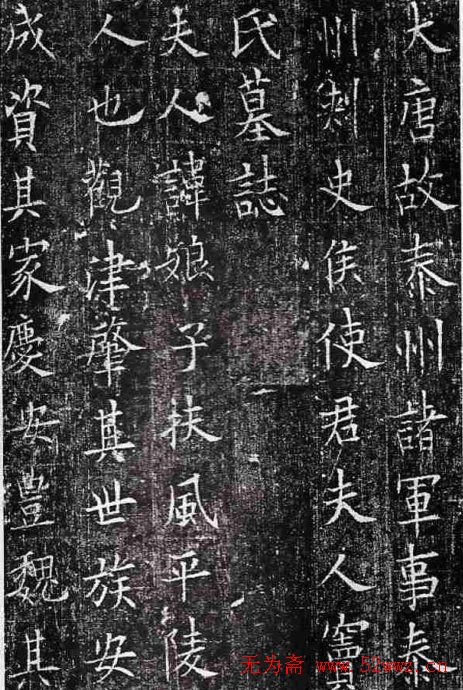 大唐故泰州諸軍事泰
州刺史侯使君夫人竇
氏墓誌
夫人諱娘子扶風平陵
人也觀津肇其世族安
成資其家慶安豐魏其
无为斋 www.51wwz.cn